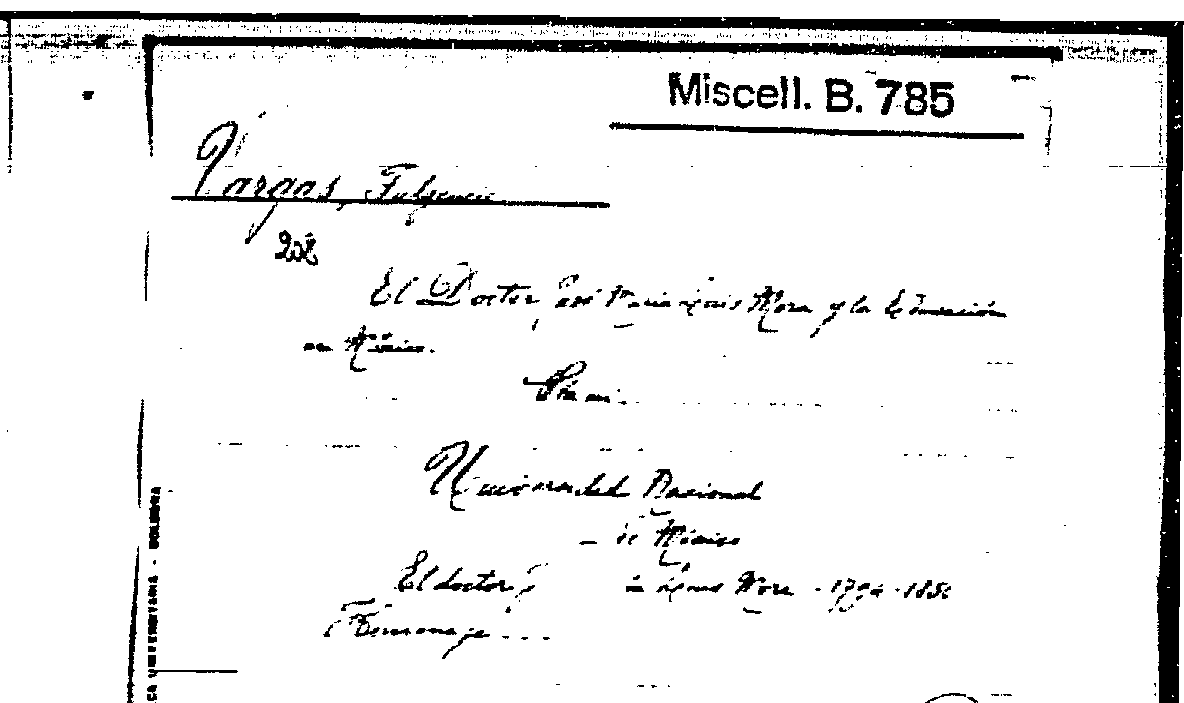 Miscell. B. 785
Vargas, Fulgencio
208
El Doctor José María Luis Mora y la Educación
en México.
Universidad Nacional
- de México
El doctor J ia Luis Mora - 1794-1850
Homenaje ...
CA UNIVERSITARIA - BOLOGNA